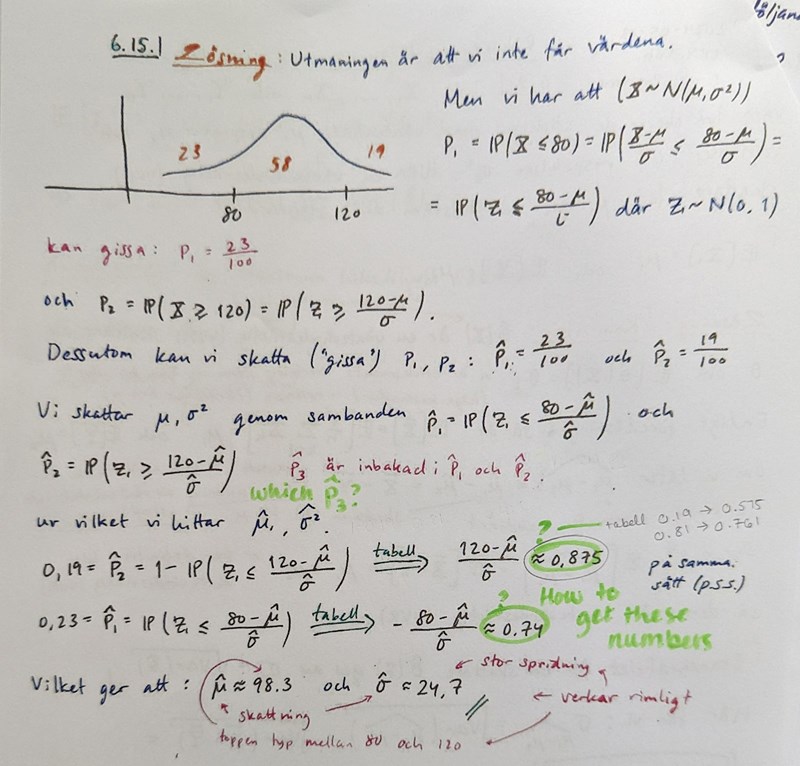 följand
6.15.) Lösning: Utmaningen är att vi inte får värdena.
Men vi har att (X ~ N(μ, σ²))
23 58 19
80 120
P₁ = P(X ≤ 80) = P((X-μ)/σ ≤ (80-μ)/σ) =
= P(Z₁ ≤ (80-μ)/σ) där Z₁ ~ N(0,1)
kan gissa: P₁ = 23/100
och P₂ = P(X ≥ 120) = P(Z ≥ (120-μ)/σ).
Dessutom kan vi skatta ("gissa") P₁, P₂ : P̂₁ = 23/100 och P̂₂ = 19/100
Vi skattar μ, σ² genom sambanden P̂₁ = P(Z₁ ≤ (80-μ̂)/σ̂) och
P̂₂ = P(Z₁ ≥ (120-μ̂)/σ̂) P̂₃ är inbakad i P̂₁ och P̂₂.
which P̂₃?
ur vilket vi hittar μ̂, σ̂².
? tabell 0.19 → 0.575
0.81 → 0.761
0,19 = P̂₂ = 1 - P(Z₁ ≤ (120-μ̂)/σ̂) tabell ⟹ (120-μ̂)/σ̂ ≈ 0,875
på samma
sätt (p.s.s.)
0,23 = P̂₁ = P(Z₁ ≤ (80-μ̂)/σ̂) tabell ⟹ - (80-μ̂)/σ̂ ≈ 0.74
? How to
get these
numbers
Vilket ger att : μ̂ ≈ 98.3 och σ̂ ≈ 24,7
stor spridning
verkar rimligt
skattning
toppen typ mellan 80 och 120